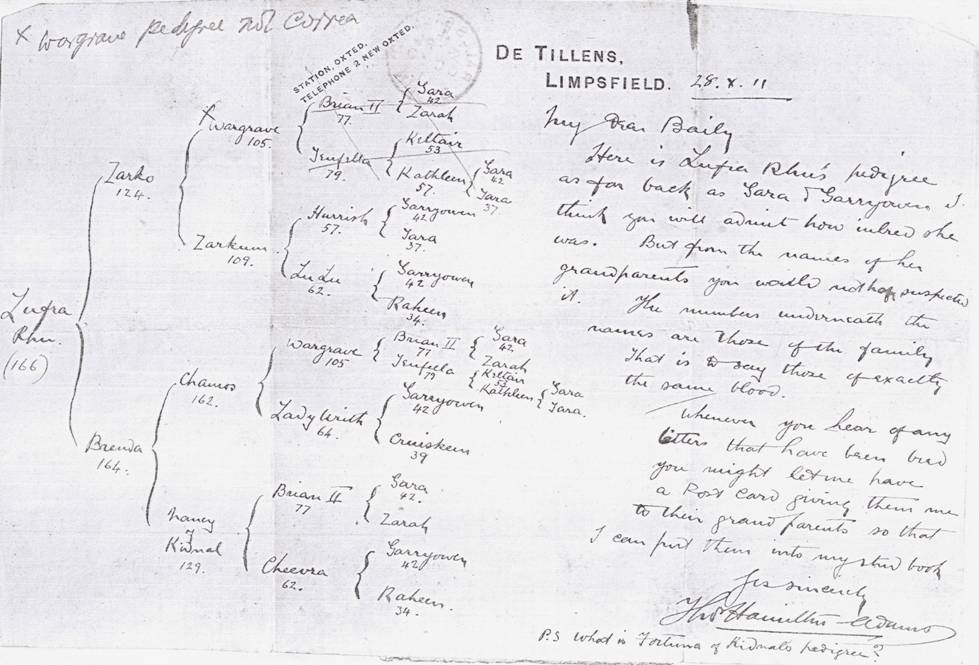 x Wargrave pedigree not Correct
STATION, OXTED.
TELEPHONE 2 NEW OXTED.
DE TILLENS,
LIMPSFIELD.
28.X.11
My Dear Baily
Here is Lufra Rhu's pedigree
as far back as Gara & Garryowen I
think you will admit how inbred she
was. But from the names of her
grandparents you would not suspected
it. The numbers underneath the
names are those of the family
That is to say those of exactly
the same blood.
Whenever you hear of any
litters that have been bred
you might let me have
a Post Card giving them me
to their grand parents so that
I can put them into my stud book
Yrs sincerely
Thos Hamilton-Adams
P.S What is Fortuna of Kidnals pedigree?
Lufra
Rhu.
(166)
Zarko
124.
x Wargrave
105.
Brian II
77.
Gara
42
Zarah
Jenfella
79.
Keltair
53
Kathleen
57.
Gara
42
Tara
37.
Zarkum
109.
Hurrish
57.
Garryowen
42
Tara
37.
LuLu
62.
Garryowen
42
Raheen
34.
Brenda
164.
Chamos
162.
Wargrave
105
Brian II
77
Gara
42
Zarah
Jenfella
79
Keltair
53
Kathleen
Gara
Tara.
Lady Writh
64.
Garryowen
42
Cruiskeen
39
Nancy
of
Kidnal
129.
Brian II
77
Gara
42.
Zarah
Cheevra
62.
Garryowen
42
Raheen.
34.